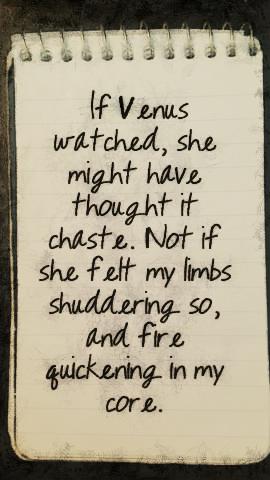 If Venus
watched, she
might have
thought it
chaste. Not if
she felt my limbs
shuddering so,
and fire
quickening in my
core.